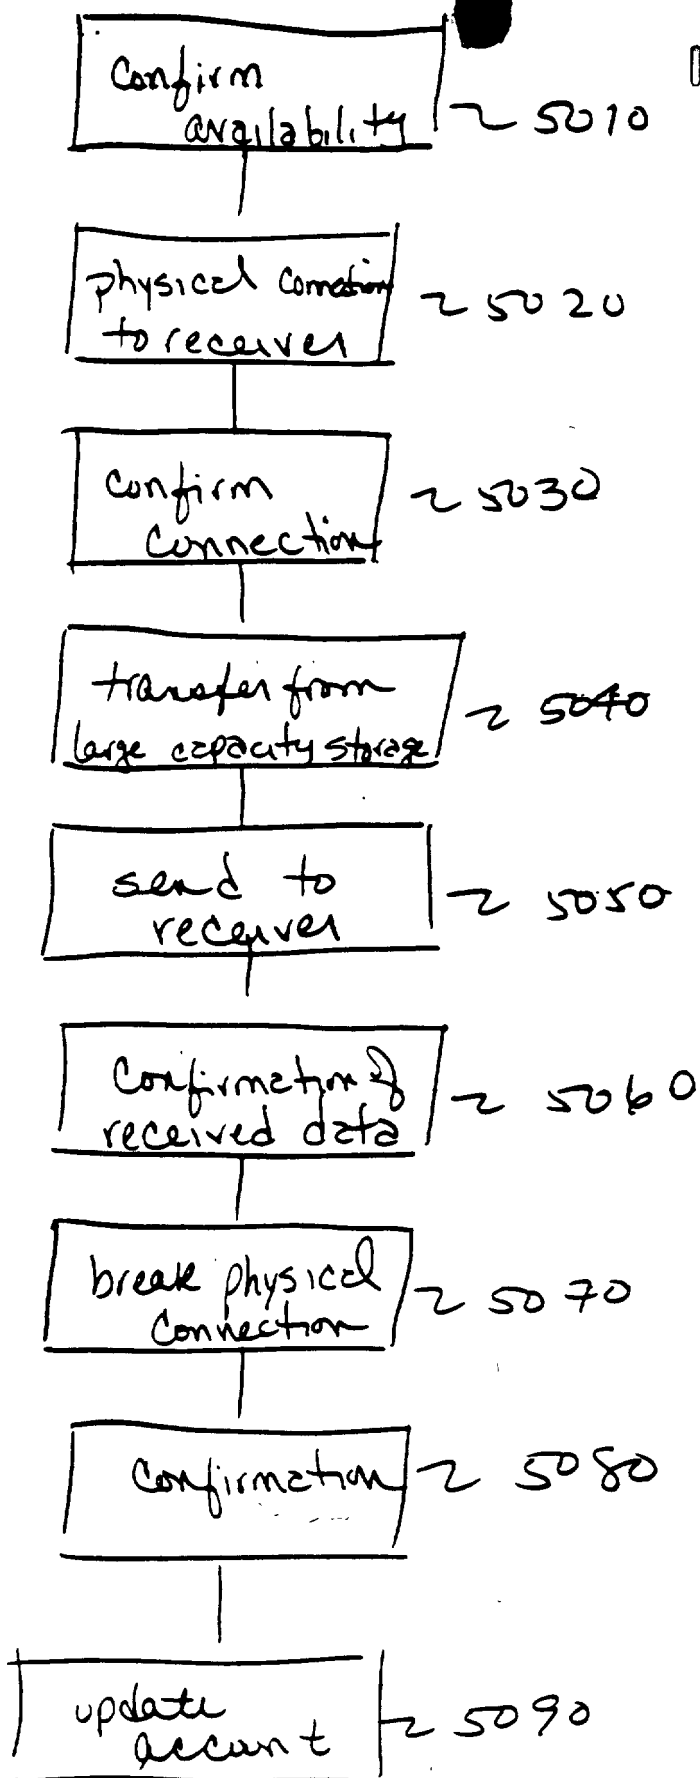 Confirm
availability
~ 5010
physical connection
to receiver
~ 5020
confirm
connection
~ 5030
transfer from
large capacity storage
~ 5040
send to
receiver
~ 5050
Confirmation of
received data
~ 5060
break physical
connection
~ 5070
Confirmation
~ 5080
update
account
~ 5090